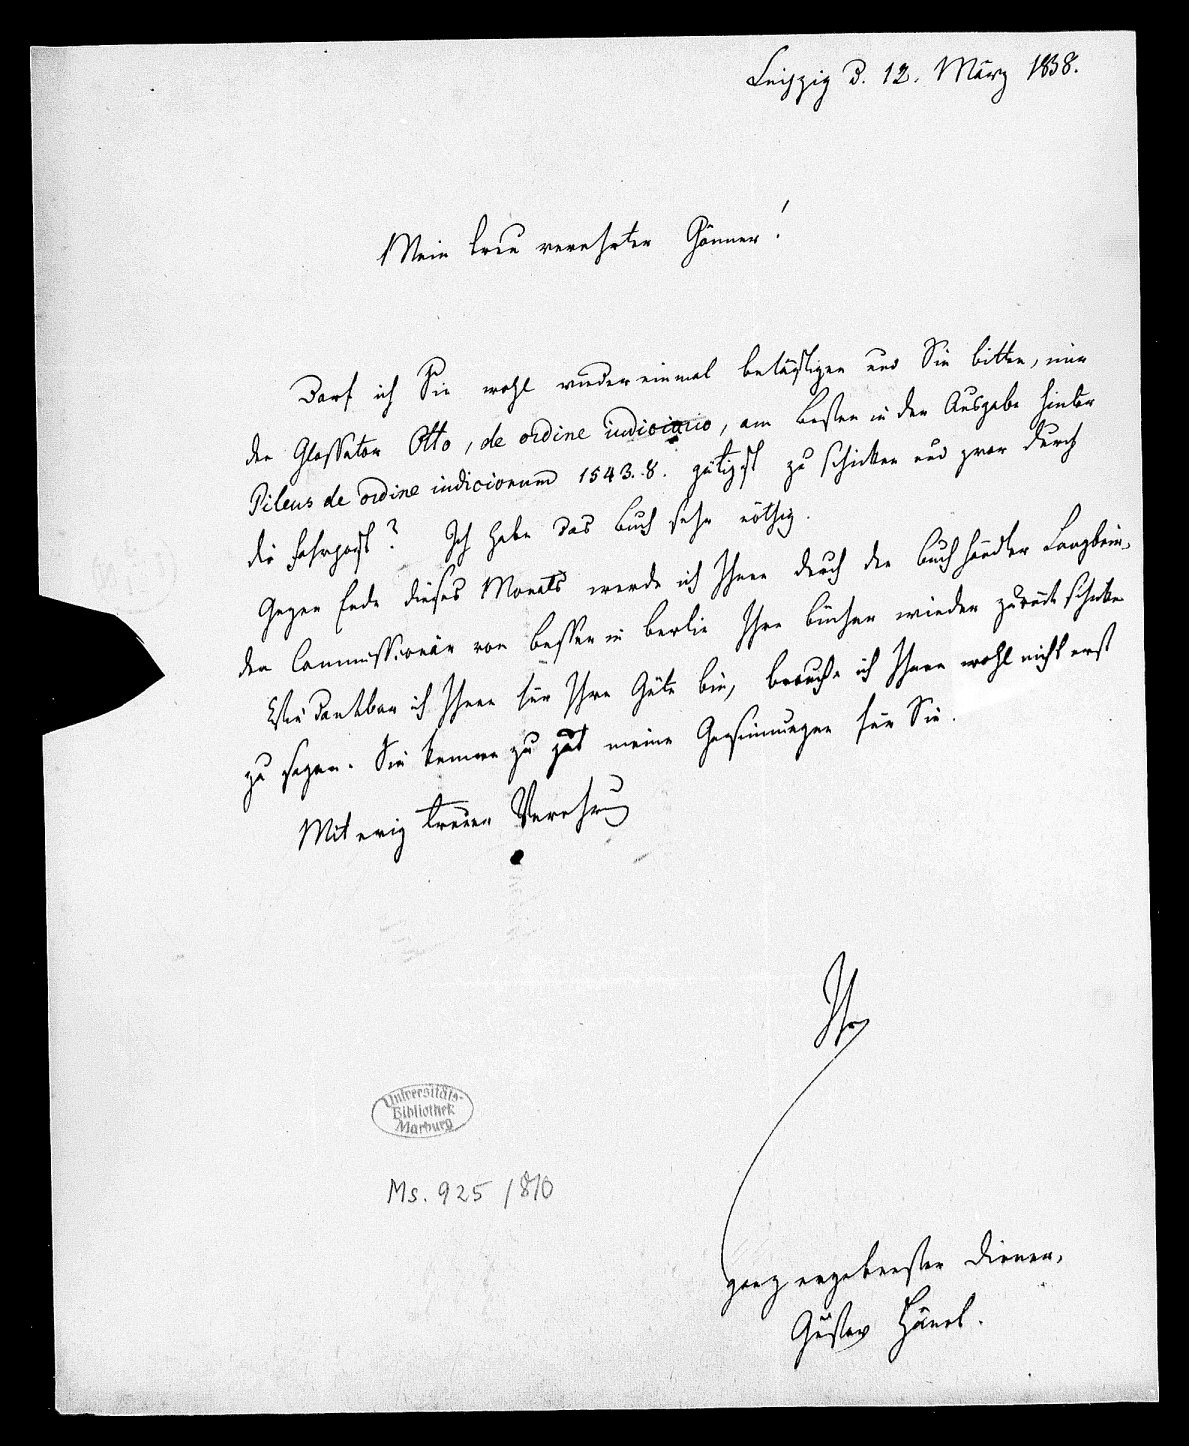 Leipzig d. 12. März 1838.
Mein treu verehrter Gönner!
Darf ich Sie wohl wieder einmal belästigen und Sie bitten, mir
den Glossator Otto, de ordine iudiciario, am besten in der Ausgabe hinter
Pileus de ordine iudiciorum 1543. 8. gütigst zu schicken und zwar durch
die Fahrpost? Ich habe das Buch sehr nöthig.
Gegen Ende dieses Monats werde ich Ihnen durch den Buchhändler Langbein,
den Commissionär von Besser in Berlin Ihre Bücher wieder zurück schicken
Wie dankbar ich Ihnen für Ihre Güte bin, brauche ich Ihnen wohl nicht erst
zu sagen. Sie kennen zu gut meine Gesinnungen für Sie.
Mit ewig treuer Verehrung
Ihr
ganz ergebenster Diener,
Gustav Hänel.
Universitäts-
Bibliothek
Marburg
Ms. 925 / 810